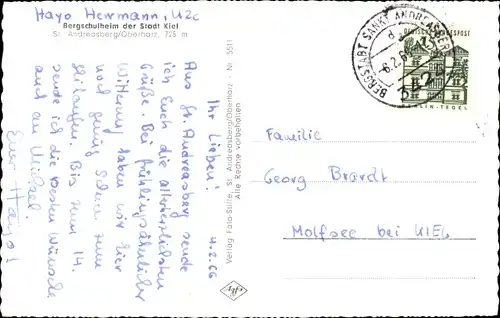 Hayo Herrmann, U2c
Bergschulheim der Stadt Kiel
St. Andreasberg/Oberharz, 725 m
4.2.66
Ihr Lieben!
Aus St. Andreasberg sende
ich Euch die allerherzlichsten
Grüße. Bei frühlingsähnlicher
Witterung haben wir hier
noch genug Schnee zum
Skilaufen. Bis zum 14.
sende ich die besten Wünsche
auch an Michael
Euer Hayo!
Verlag Foto-Stille, St. Andreasberg/Oberharz - Nr. 5511
Alle Rechte vorbehalten
BERGSTADT SANKT ANDREASBERG
d
6.2.
3424
DEUTSCHE BUNDESPOST
15
BERLIN-TEGEL
Familie
Georg Brandt
Molfsee bei KIEL